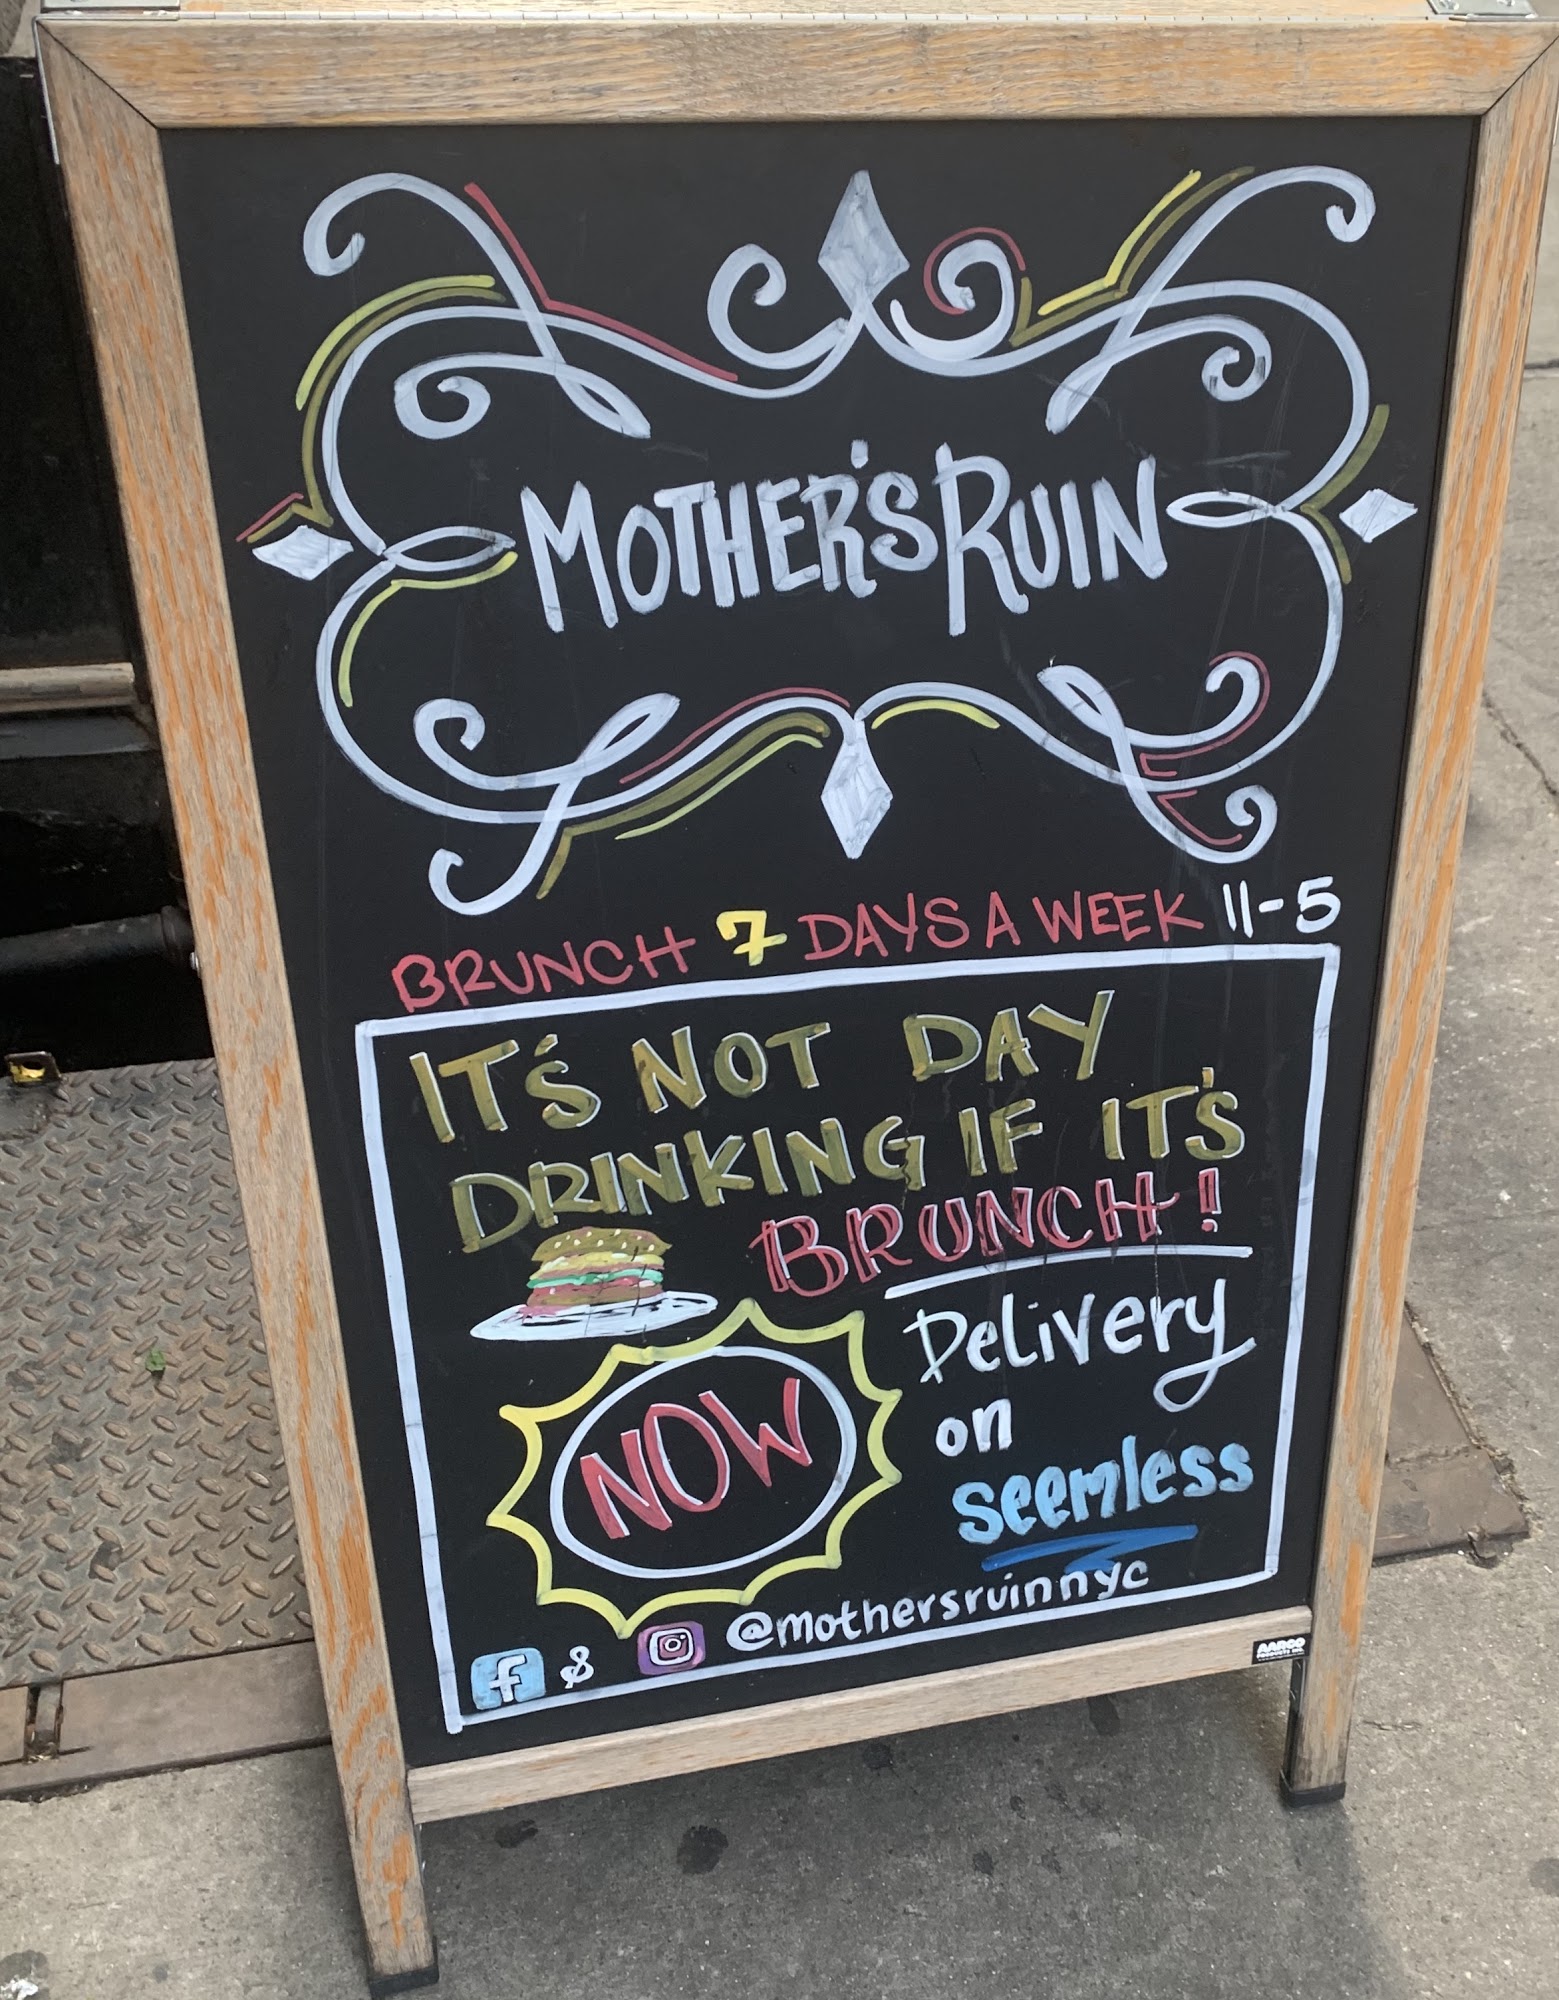 MOTHER'S RUIN
BRUNCH 7 DAYS A WEEK 11-5
IT'S NOT DAY
DRINKING IF IT'S
BRUNCH!
NOW
Delivery
on
seemless
f & @mothersruinnyc
AARCO